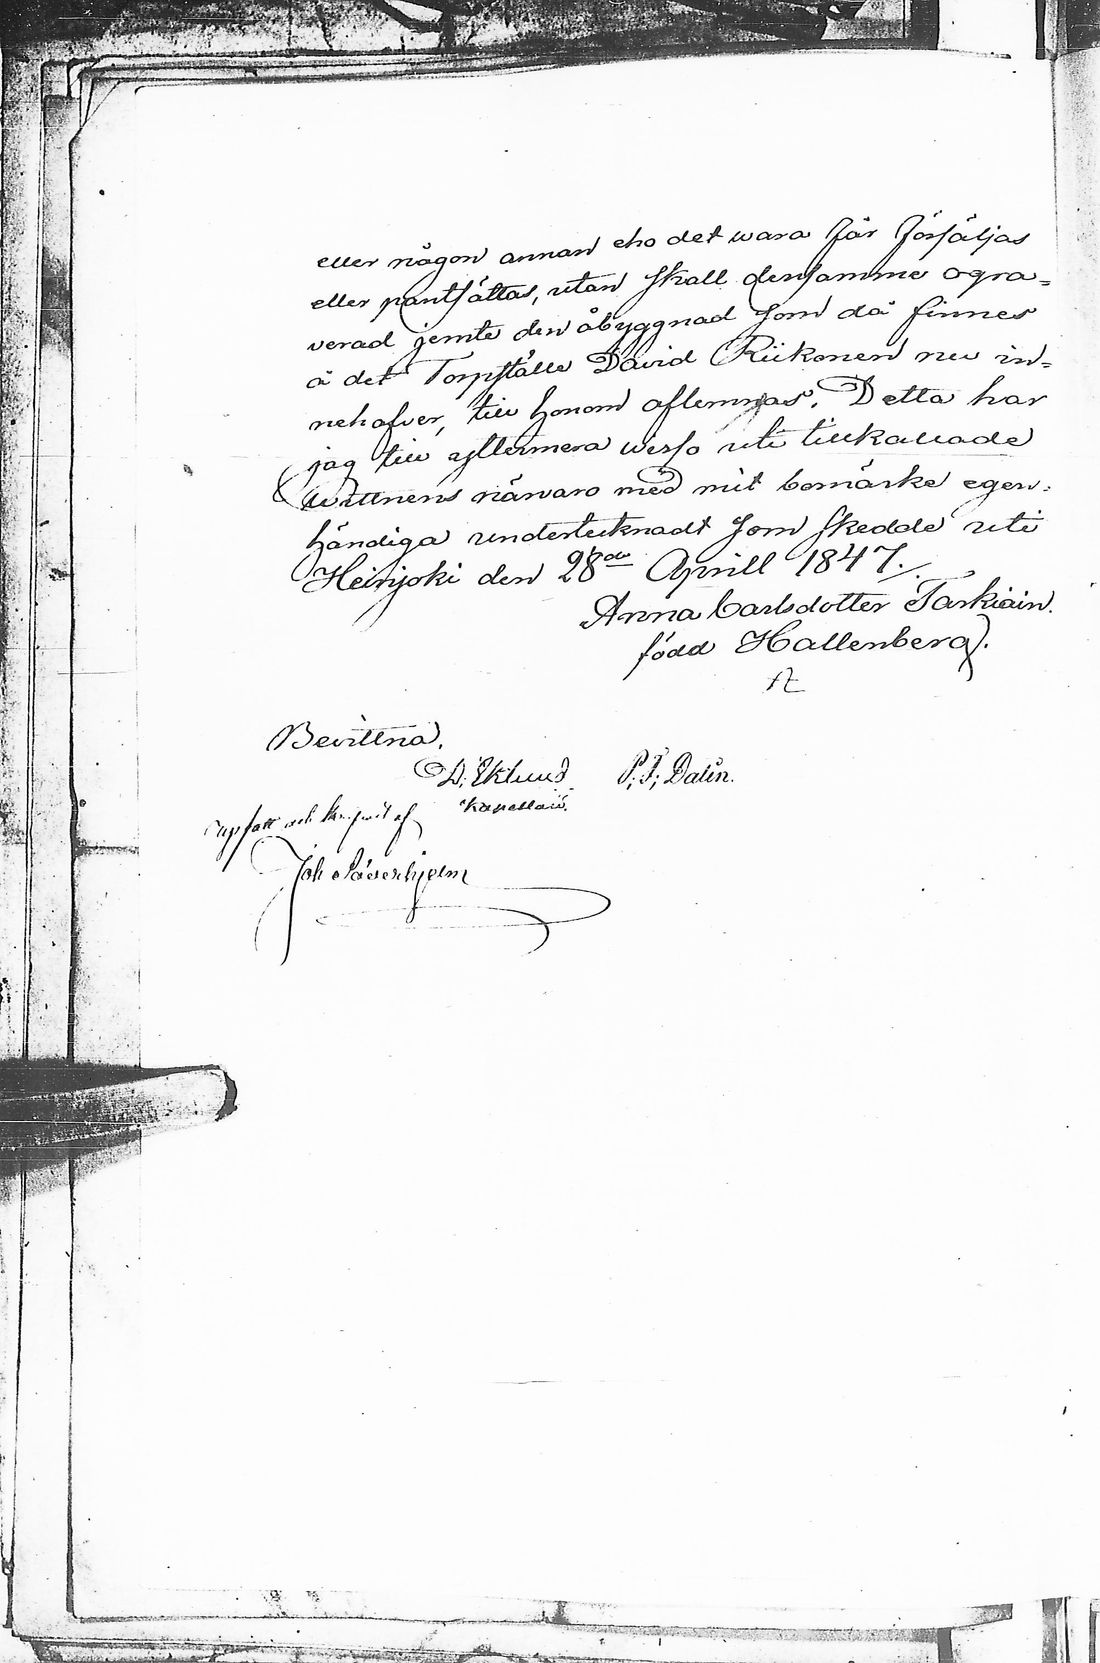 eller någon annan eho det wara får försäljas
eller pantsättas, utan skall densamme ogra=
verad jemte den åbyggnad som då finnes
å det Torpställe David Riikonen nu in=
nehafver, till honom aflemnas. Detta har
jag till yttermera wisso uti tillkallade
Wittnens närvaro med mit bomärke egen=
händiga undertecknadt som skedde uti
Heinjoki den 28de Aprill 1847.
Anna Carlsdotter Tarkiain.
född Hallenberg.
Bevittna.
D. Eklund P. F. Dalin.
Kapellan.
Uppsatt och skrifvit af
Joh